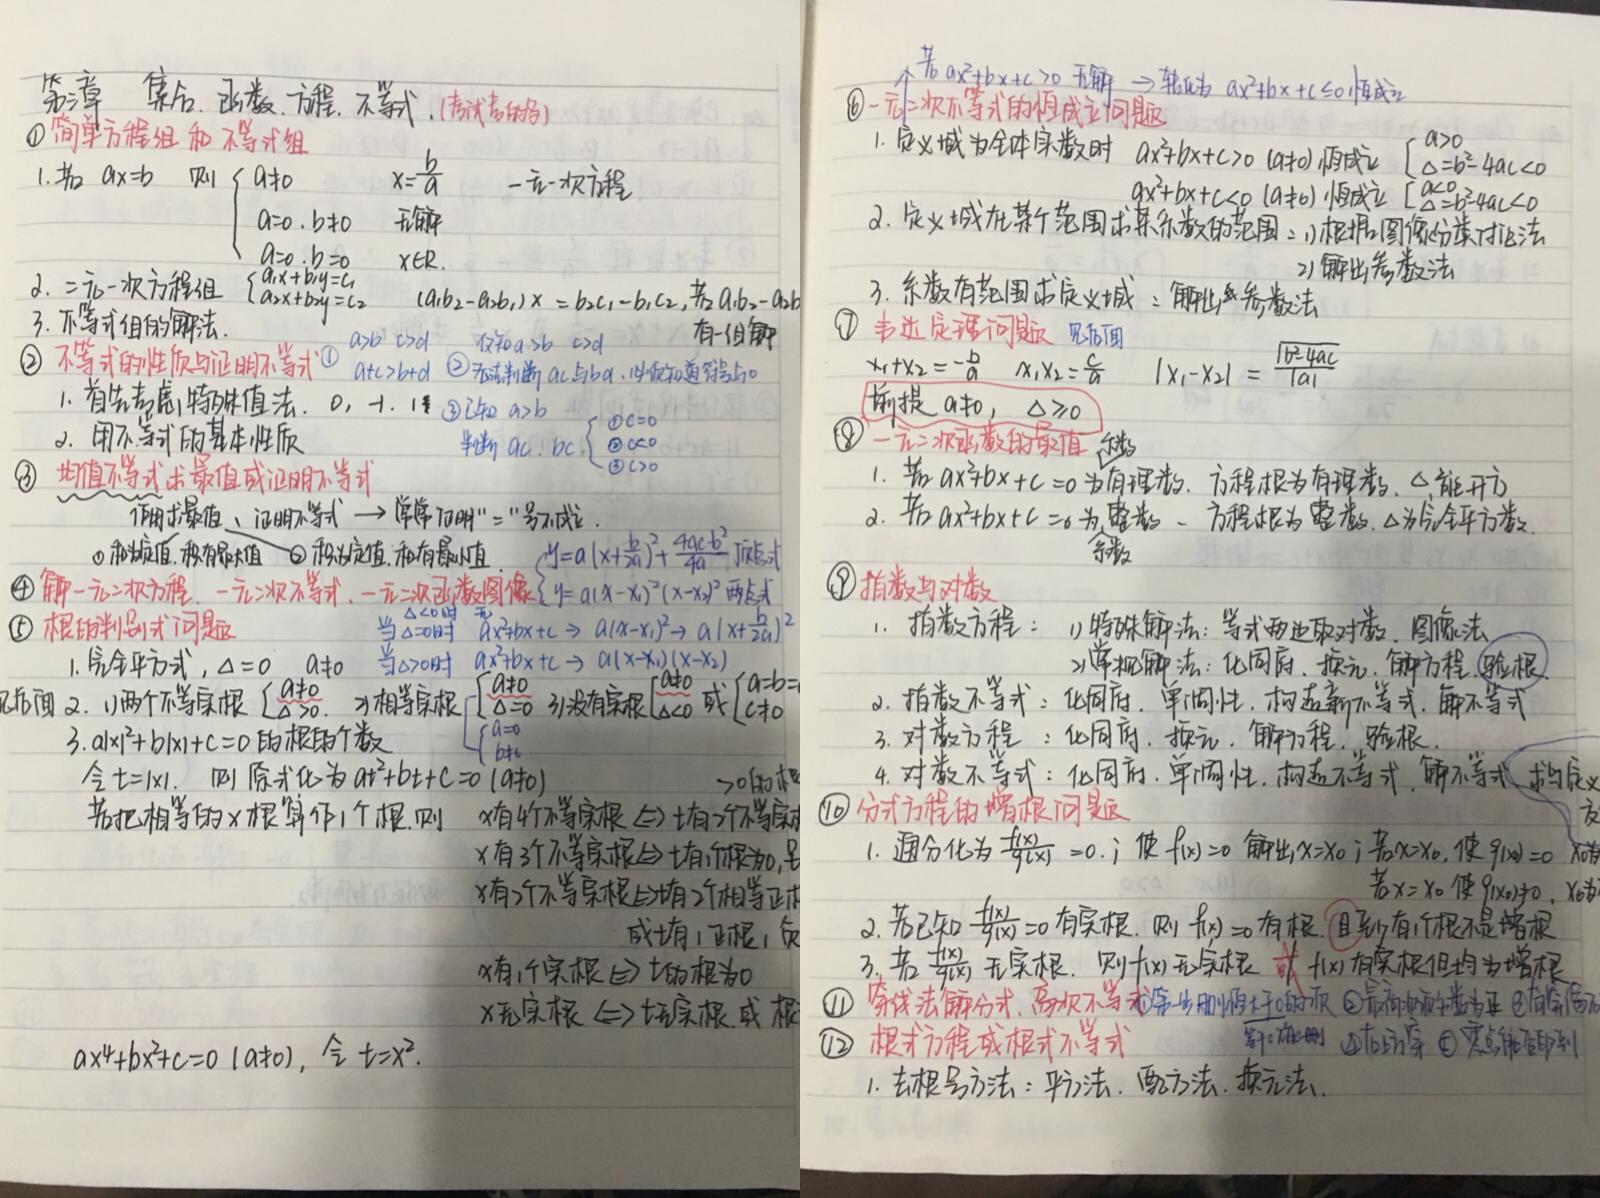 第三章 集合.函数.方程.不等式.(考试考的多)
① 简单方程组和不等式组
1.若 ax=b 则 { a≠0 x=b/a 一元一次方程
a=0.b≠0 无解
a=0.b=0 x∈R.
2.二元一次方程组 { a₁x+b₁y=c₁ a₂x+b₂y=c₂ (a₁b₂-a₂b₁)x=b₂c₁-b₁c₂,若a₁b₂-a₂b
有一组解
3.不等式组的解法.
② 不等式的性质与证明不等式
① a>b c>d a+c>b+d
② 仅知a>b c>d 无法判断ac与bd.
1.首先考虑特殊值法. 0,-1.1
2.用不等式的基本性质
③ 已知a>b
判断ac.bc { ①c=0 ②c<0 ③c>0
③ 均值不等式求最值或证明不等式
作用求最值、证明不等式 → 常常证明"="号不成立.
①和为定值.积有最大值 ②积为定值.和有最小值
④ 解一元二次方程.一元二次不等式.一元二次函数图像 { y=a(x+b/2a)²+(4ac-b²)/4a 顶点式
y=a(x-x₁)²(x-x₂)² 两点式
⑤ 根的判别式问题
△<0时 无
当△=0时 ax²+bx+c→a(x-x₁)²→a(x+b/2a)²
当△>0时 ax²+bx+c→a(x-x₁)(x-x₂)
1.完全平方式,△=0 a≠0
见后面 2. 1)两个不等实根 { a≠0 △>0. 2)相等实根 [ { a≠0 △=0 { a=0 b≠0 3)没有实根 { a≠0 △<0 或 { a=b= c≠0
3.a|x|²+b|x|+c=0的根的个数
令t=|x|. 则原式化为at²+bt+c=0(a≠0)
>0的根
若把相等的x根算作1个根.则 x有4个不等实根⇔t有2个不等实
x有3个不等实根⇔t有1个根为0,
x有2个不等实根⇔t有2个相等正
或t有1正根1负
x有1个实根⇔t的根为0
x无实根⇔t无实根.或根
ax⁴+bx²+c=0(a≠0),令t=x².
若ax²+bx+c>0无解 →转化为 ax²+bx+c≤0恒成立
⑥ 一元二次不等式的恒成立问题
1.定义域为全体实数时 ax²+bx+c>0(a≠0)恒成立 { a>0 △=b²-4ac<0
ax²+bx+c<0(a≠0)恒成立 { a<0 △=b²-4ac<0
2.定义域在某个范围求某系数的范围:1)根据图像分类讨论法
2)解出参数法
3.系数有范围求定义域:解出参数法
⑦ 韦达定理问题 见后面
x₁+x₂=-b/a x₁x₂=c/a |x₁-x₂|=√(b²-4ac)/|a|
前提 a≠0, △≥0
⑧ 一元二次函数的最值
系数
1.若ax²+bx+c=0为有理数.方程根为有理数.△能开方
2.若ax²+bx+c=0为整数-方程根为整数.△为完全平方数.
系数
⑨ 指数与对数
1.指数方程:1)特殊解法:等式两边取对数.图像法
2)常规解法:化同底.换元.解方程.验根.
2.指数不等式:化同底.单调性.构造新不等式.解不等式
3.对数方程:化同底.换元.解方程.验根.
4.对数不等式:化同底.单调性.构造不等式.解不等式
⑩ 分式方程的增根问题
1.通分化为 f(x)/g(x)=0.;使f(x)=0解出x=x₀;若x=x₀,使g(x)=0 x₀
若x=x₀使g(x₀)≠0,x₀为
2.若已知f(x)/g(x)=0有实根.则f(x)=0有根.且至少有1个根不是增根
3.若f(x)/g(x)无实根.则f(x)无实根 或 f(x)有实根但均为增根
⑪ 穿线法解分式、高次不等式 ①第一步删恒大于0的项 ②最高次项系数为正
⑫ 根式方程或根式不等式
1.去根号方法:平方法.配方法.换元法.